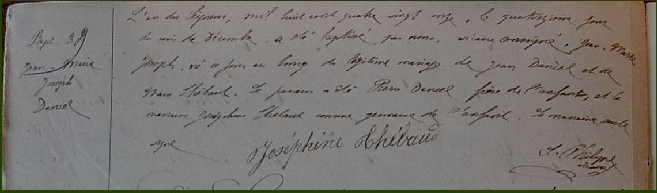 L'an du Seigneur, mil huit cent quatre vingt onze, le quatorzième jour
Bapt. 38
du mois de Décembre a été baptisé par nous, vicaire soussigné, Jean-Marie
Jean-Marie
Joseph, né ce jour au bourg du légitime mariage de Jean Daniel et de
Joseph
Daniel
Marie Thébaud. Le parrain a été Pierre Daniel frère de l'enfant, et la
marraine Joséphine Thébaud cousine germaine de l'enfant. La marraine seule
signe
Joséphine Thébaud